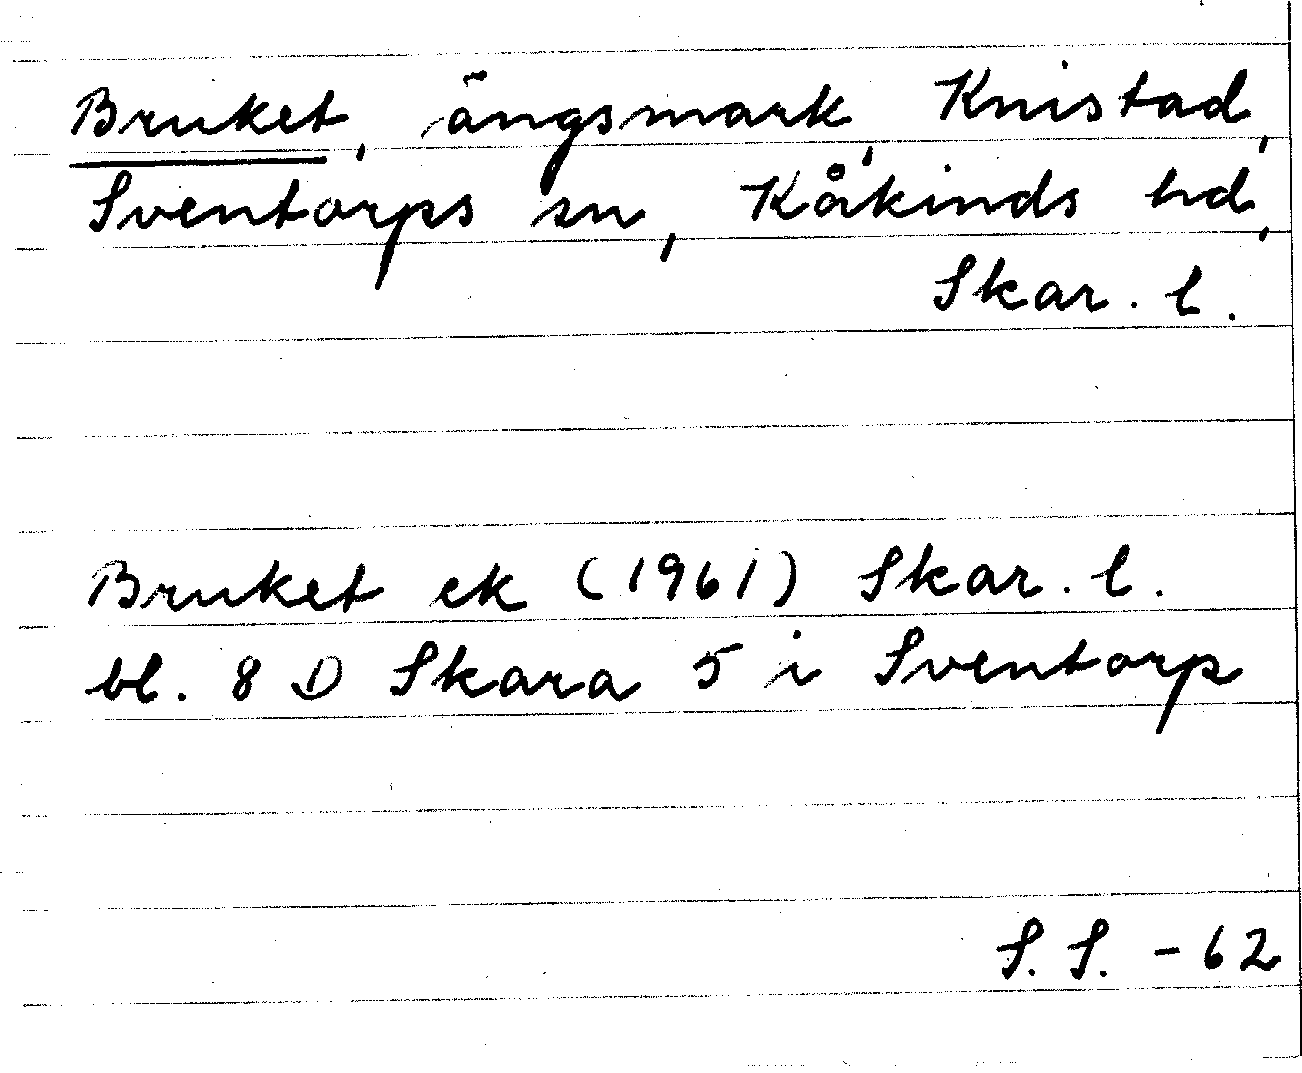 Bruket, ängsmark, Knistad,
Sventorps sn, Kåkinds hd,
Skar. l.
Bruket ek (1961) Skar. l.
bl. 8 D Skara 5 i Sventorp
S. S. -62